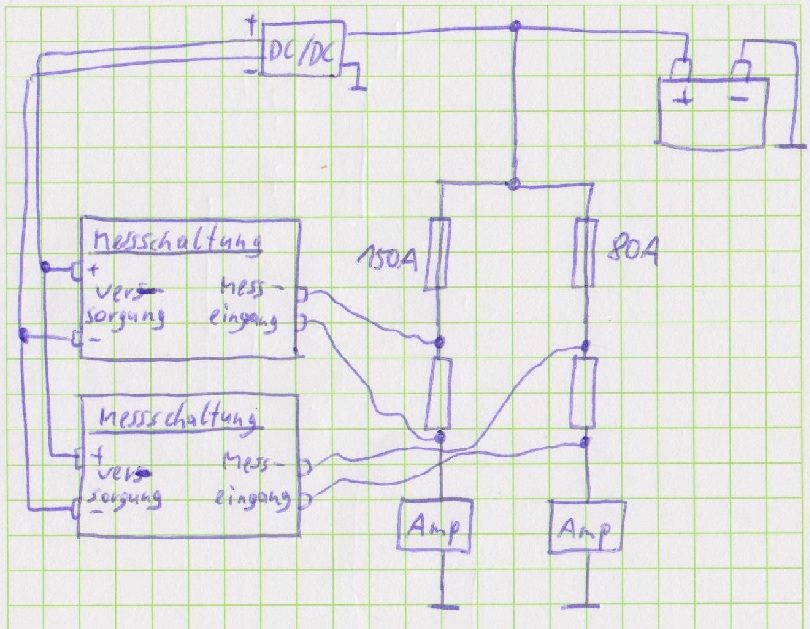 +
DC/DC
-
+ -
Messschaltung
+
vers
sorgung
-
Mess-
eingang
150A
80A
Messschaltung
+
vers
sorgung
-
Mess-
eingang
Amp
Amp